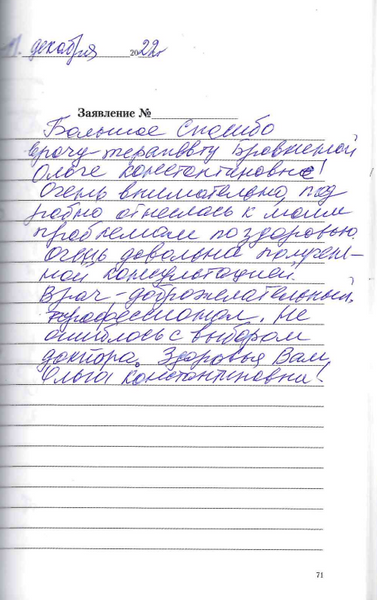 1. декабря 2022г
Заявление №
Большое спасибо
врачу терапевту
Ольге Константиновне!
Очень внимательно, под
робно отнеслась к моим
проблемам по здоровью.
Очень довольна получен-
ной консультацией.
Врач-доброжелательный,
профессионал. Не
ошиблось с выбором
доктора. Здоровья Вам,
Ольга Константиновна!
71